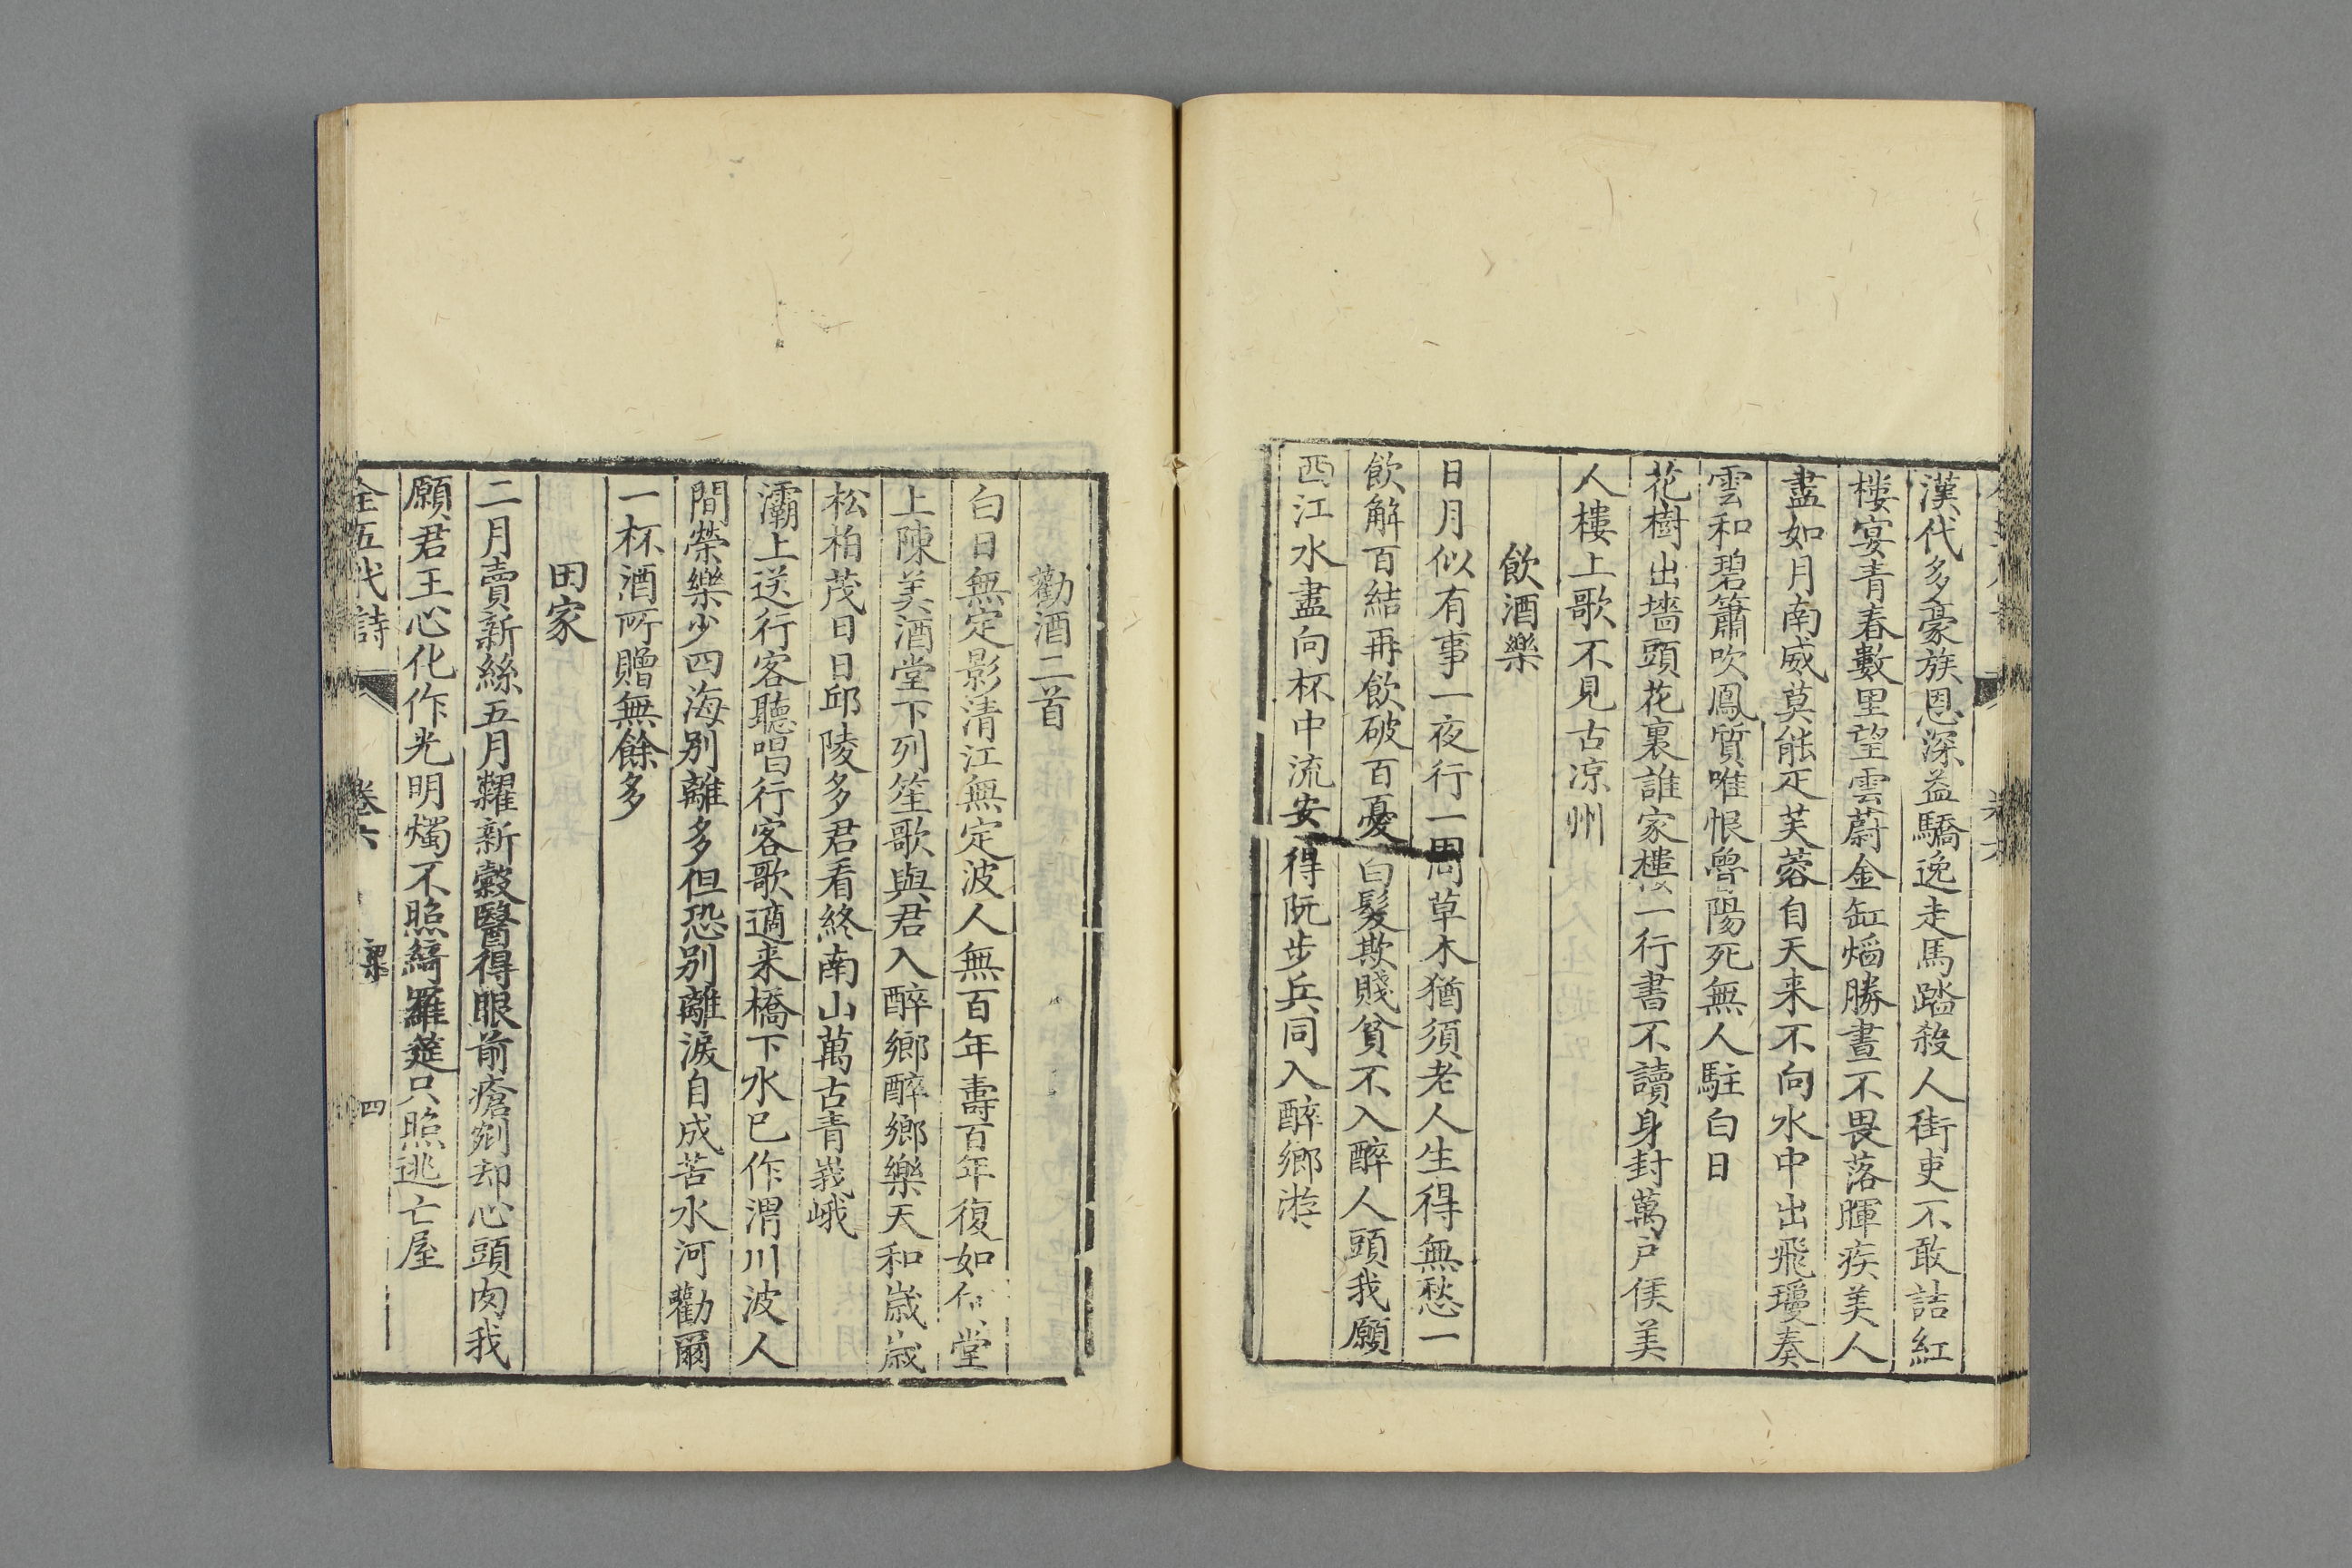 漢代多豪族恩深益驕逸走馬踏殺人街吏不敢詰紅
樓宴青春數里望雲蔚金缸熖勝晝不畏落暉疾美人
盡如月南威莫能疋芙蓉自天来不向水中出飛瓊奏
雲和碧簫吹鳳質唯恨魯陽死無人駐白日
花樹出墻頭花裏誰家樓一行書不讀身封萬戸侯美
人樓上歌不見古凉州
飲酒樂
日月似有事一夜行一周草木猶須老人生得無愁一
飲解百結再飲破百憂白髮欺賤貧不入醉人頭我願
西江水盡向杯中流安得阮步兵同入醉鄉游
勸酒二首
白日無定影清江無定波人無百年壽百年復如何堂
上陳美酒堂下列笙歌與君入醉鄉醉鄉樂天和歲歲
松柏茂日日邱陵多君看終南山萬古青峩峨
灞上送行客聽唱行客歌適来橋下水已作渭川波人
間榮樂少四海别離多但恐别離淚自成苦水河勸爾
一杯酒所贈無餘多
田家
二月賣新絲五月糶新穀醫得眼前瘡剜却心頭肉我
願君王心化作光明燭不照綺羅筵只照逃亡屋
全五代詩 卷六 四